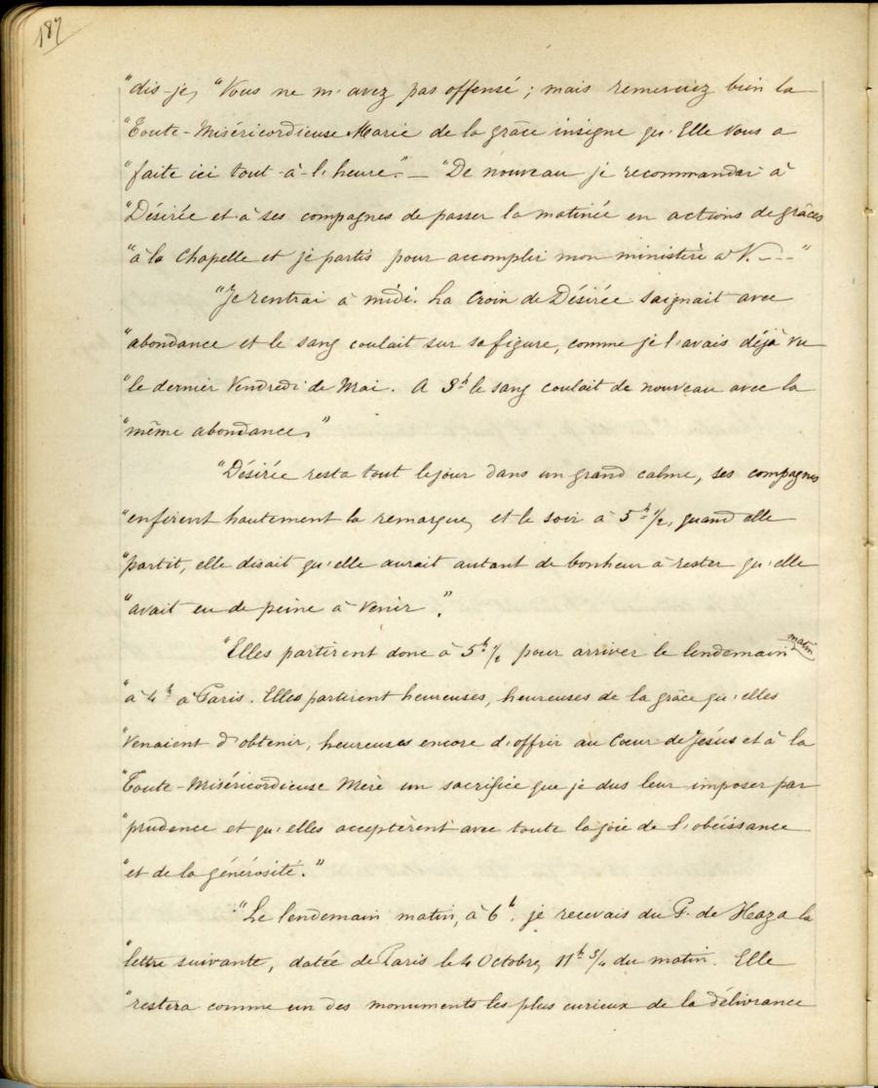 187
"dis-je, "Vous ne m'avez pas offensé ; mais remerciez bien la
"Toute-Miséricordieuse Marie de la grâce insigne qu'Elle vous a
"faite ici tout-à-l'heure." — "De nouveau je recommandai à
"Désirée et à ses compagnes de passer la matinée en actions de grâces
"à la Chapelle et je partis pour accomplir mon ministère à V. ---"
"Je rentrai à midi. La Croix de Désirée saignait avec
"abondance et le sang coulait sur sa figure, comme je l'avais déjà vu
"le dernier Vendredi de Mai. A 3h le sang coulait de nouveau avec la
"même abondance,"
"Désirée resta tout le jour dans un grand calme, ses compagnes
"en firent hautement la remarque, et le soir à 5h ½, quand elle
"partit, elle disait qu'elle aurait autant de bonheur à rester qu'elle
"avait eu de peine à venir."
"Elles partirent donc à 5h ½ pour arriver le lendemain matin
"à 4h à Paris. Elles partirent heureuses, heureuses de la grâce qu'elles
"venaient d'obtenir, heureuses encore d'offrir au Cœur de Jésus et à la
"Toute-Miséricordieuse Mère un sacrifice que je dus leur imposer par
"prudence et qu'elles acceptèrent avec toute la joie de l'obéissance
"et de la générosité."
"Le lendemain matin, à 6h. je recevais du P. de Haza la
"lettre suivante, datée de Paris le 4 Octobre, 11h ¾ du matin. Elle
"restera comme un des monuments les plus curieux de la délivrance